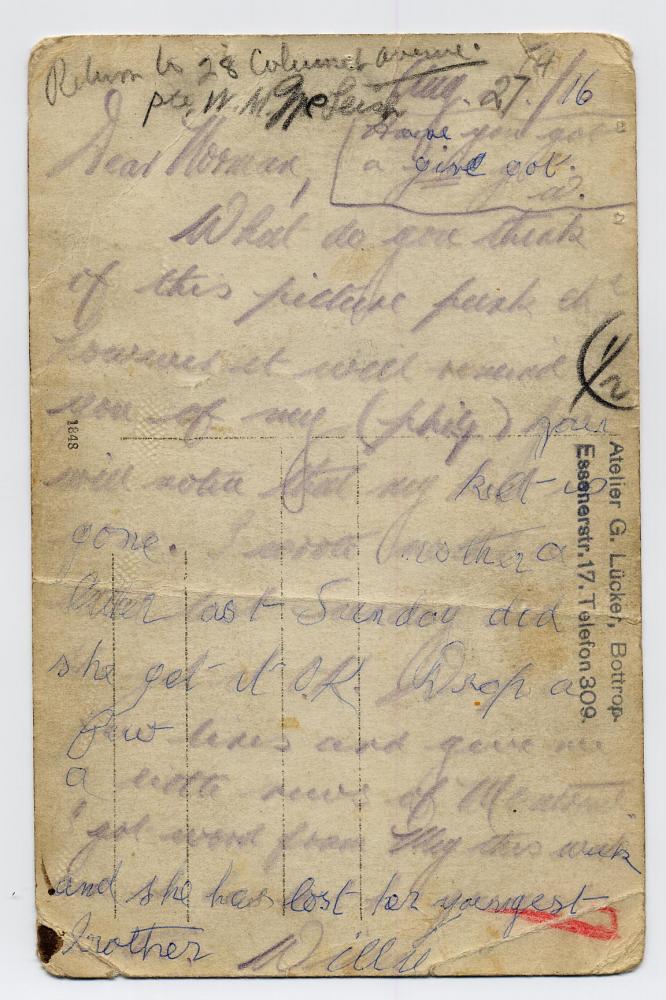 Return to 28 Columet avenue.
14
Pte. W. M.
Aug. 27/16
Have you got
a girl got.
W.
Dear Norman,
What do you think
of this picture punk eh
however it will remind
you of my (phiz) you
will notice that my kilt is
gone. I wrote mother a
letter last Sunday did
she get it O.K. Drop a
few lines and give me
a little news of Montreal
I got word from Meg this week
and she has lost her youngest
brother Willie
1/2
1848
Atelier G. Lücker, Bottrop.
Essenerstr. 17. Telefon 309.